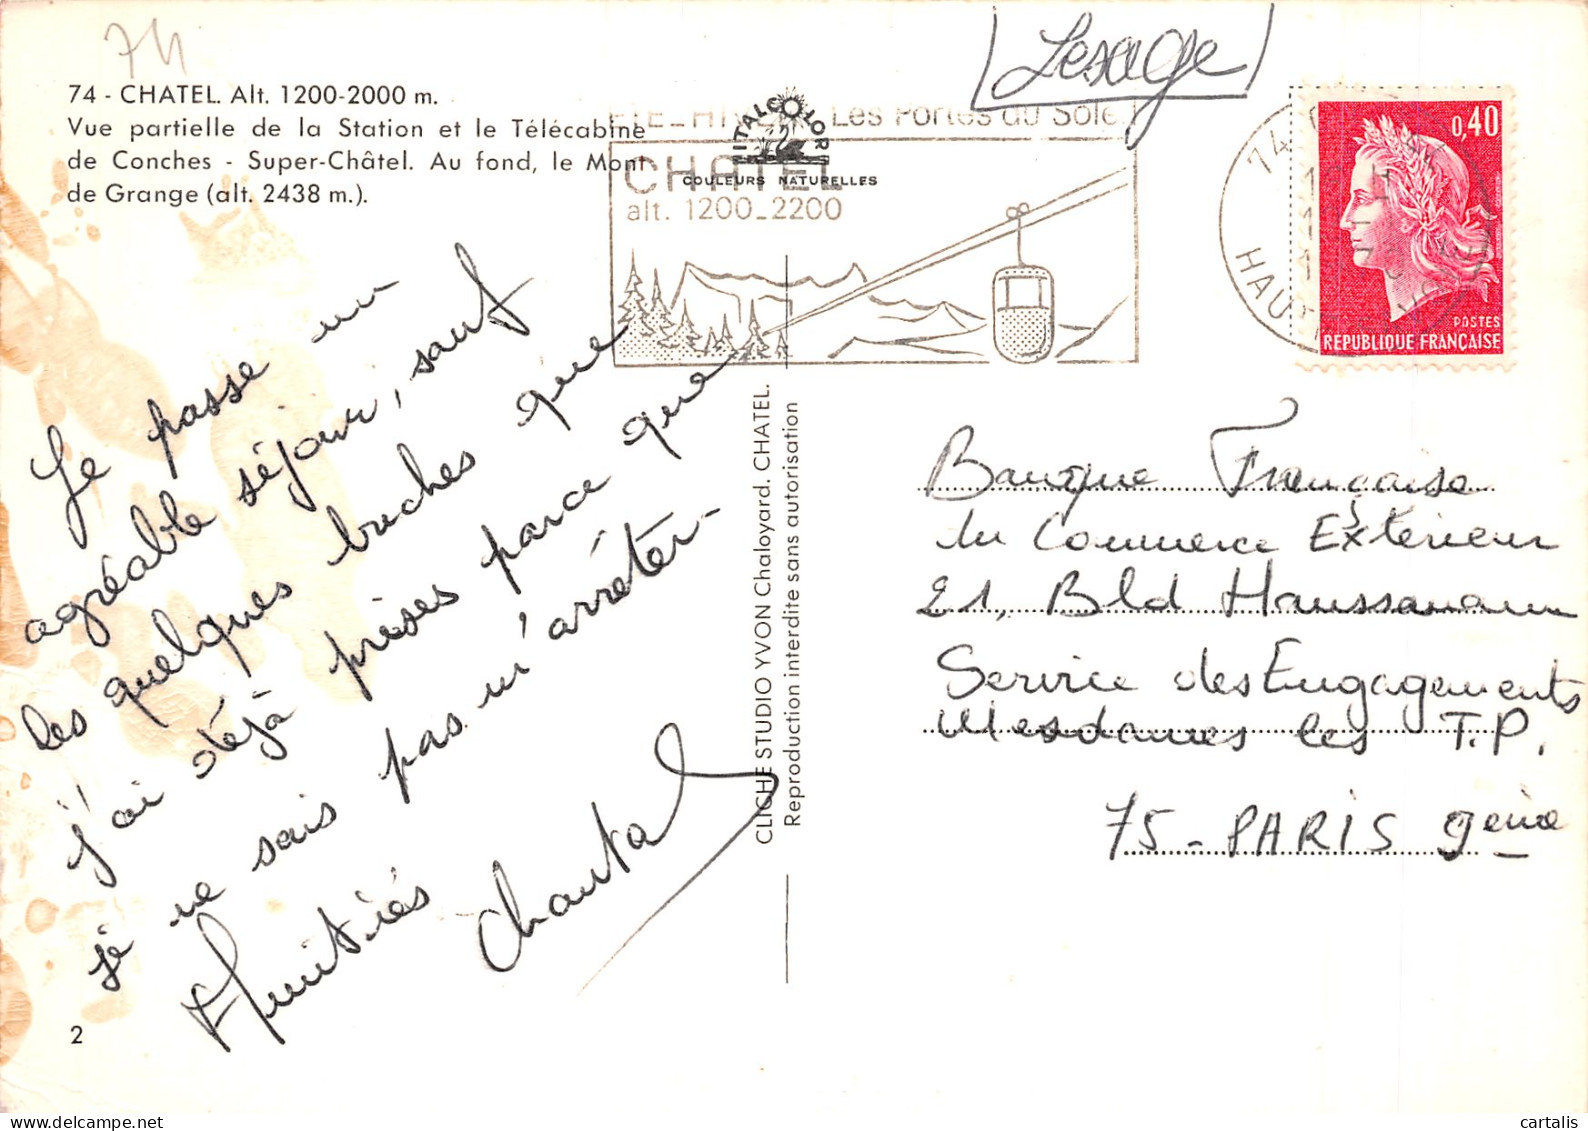 74
74 - CHATEL. Alt. 1200-2000 m.
Vue partielle de la Station et le Télécabine
de Conches - Super-Châtel. Au fond, le Mont
de Grange (alt. 2438 m.).
Lesage
ITALCOLOR
COULEURS NATURELLES
ETE_HIVER Les Portes du Soleil
CHATEL
alt. 1200_2200
74
HAUTE SAVOIE
0,40
POSTES
REPUBLIQUE FRANÇAISE
Je passe un
agréable séjour, sauf
les quelques buches que
j'ai déjà prises parce que
je ne sais pas m'arrêter-
Amitiés
Chantal
2
CLICHE STUDIO YVON Chaloyard. CHATEL.
Reproduction interdite sans autorisation
Banque Française
du Commerce Extérieur
21, Bld Haussmann
Service des Engagements
Mesdames les T.P.
75 - PARIS 9ème
cartalis